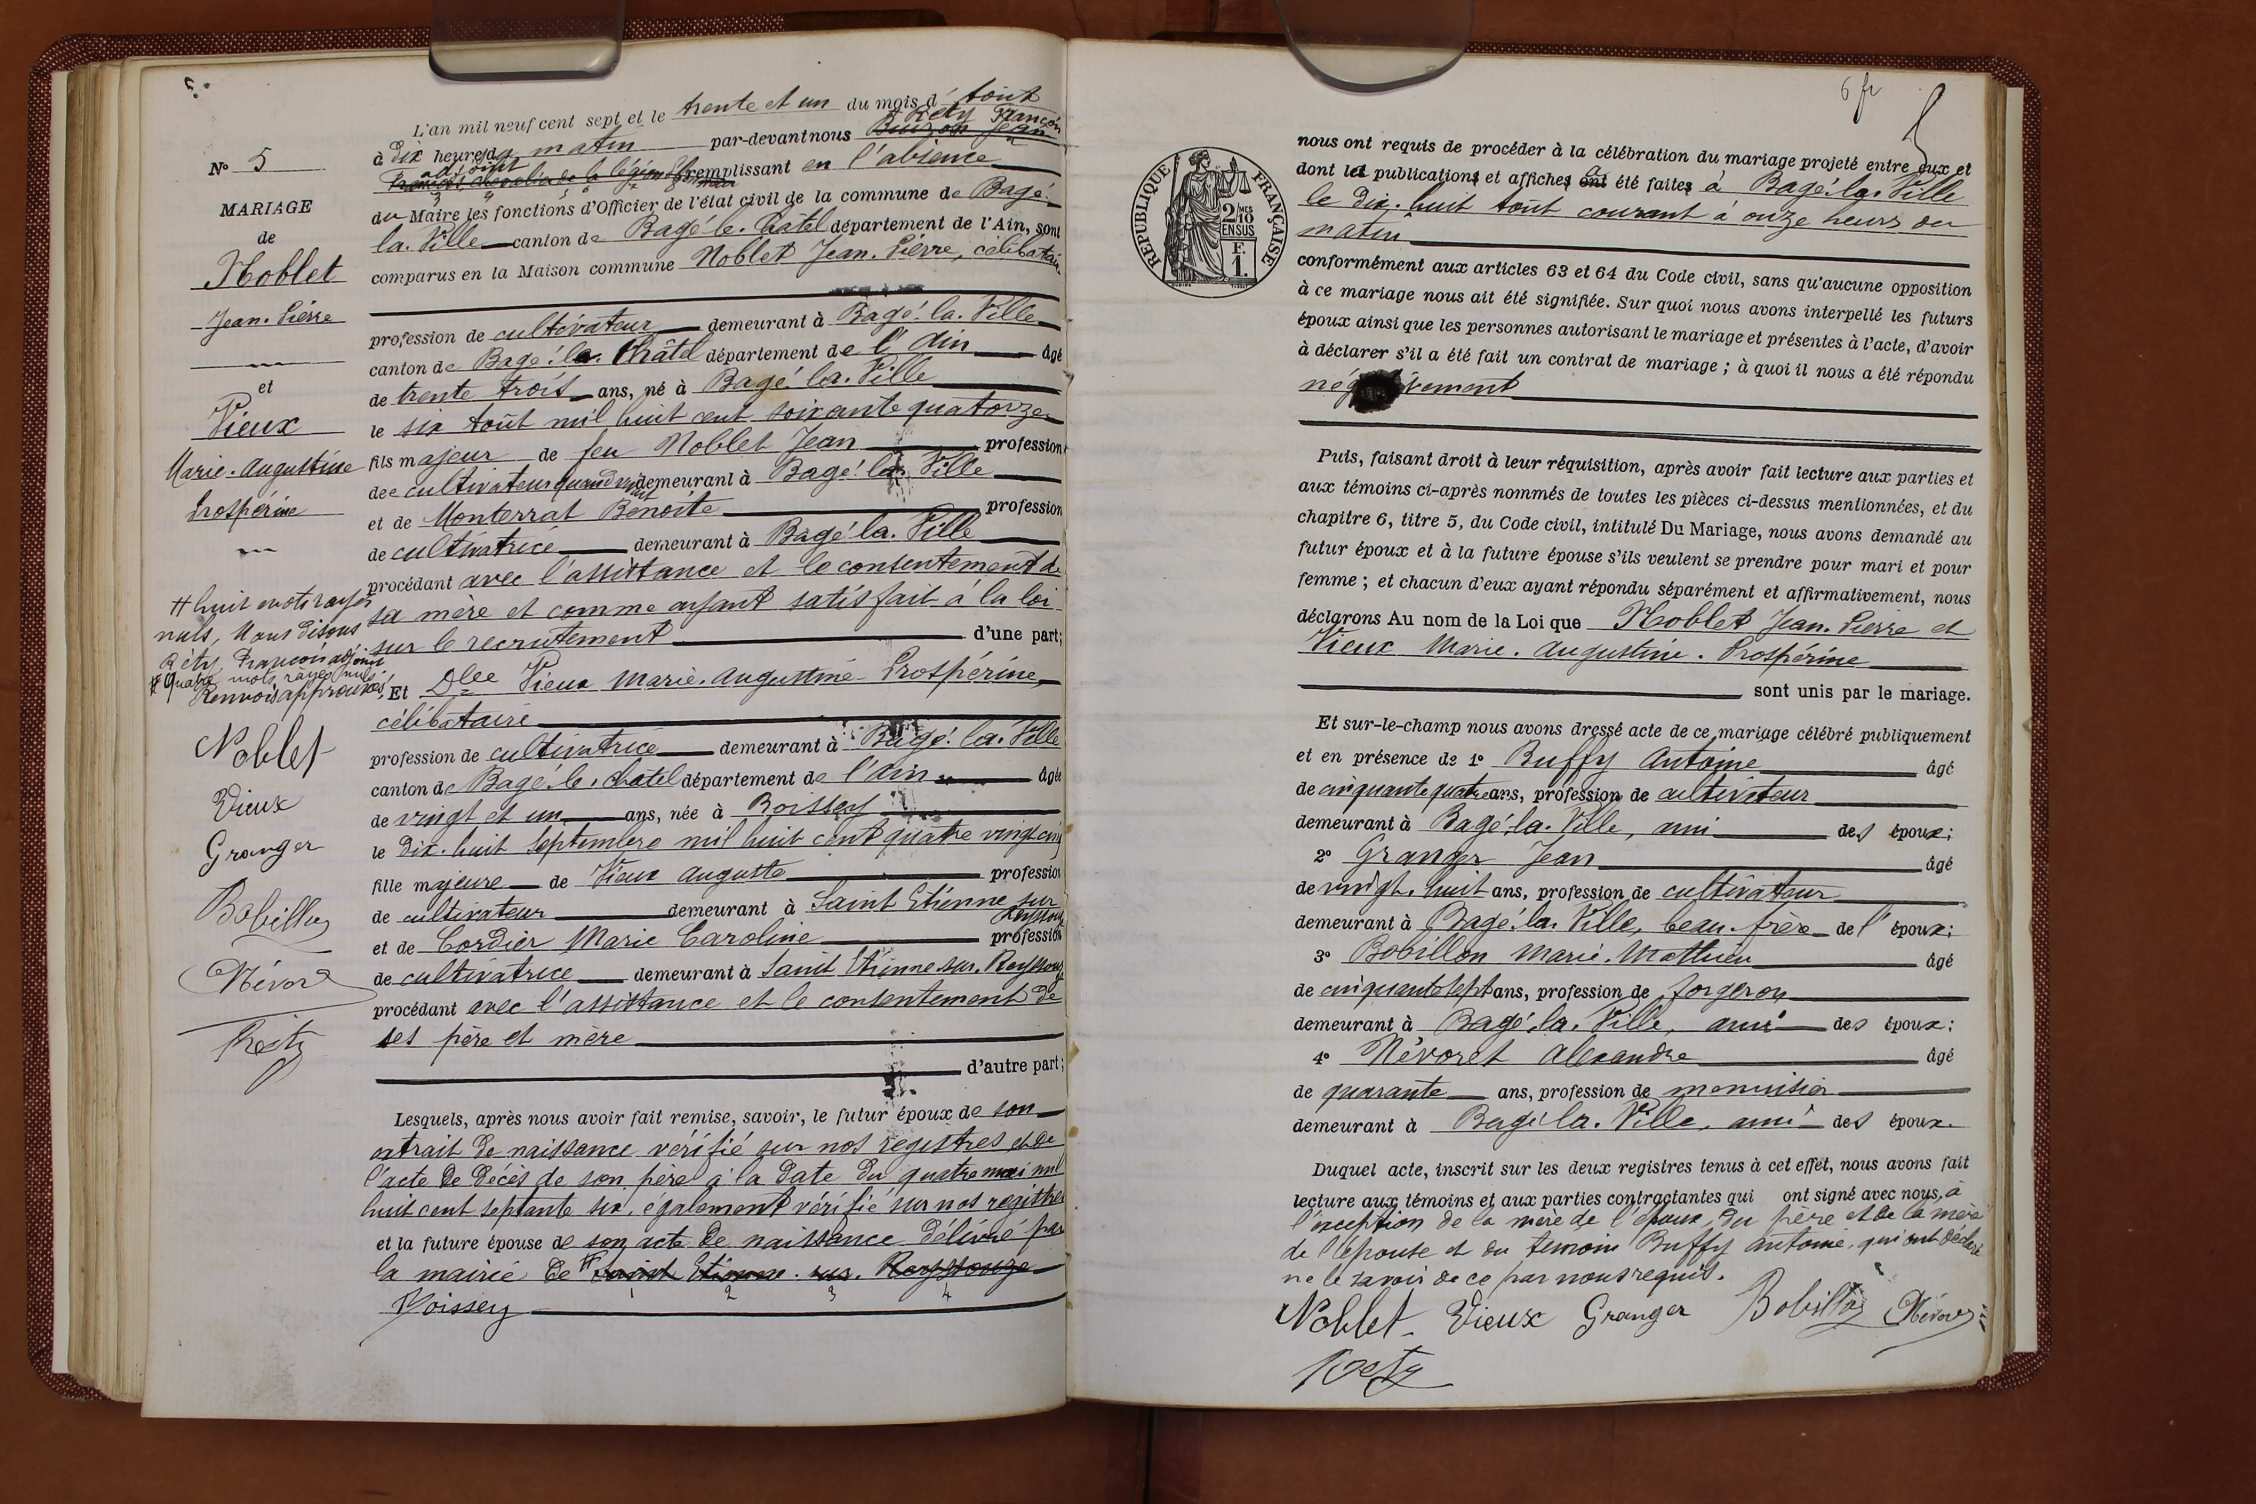 N° 5
MARIAGE
de
Noblet
Jean-Pierre
et
Vieux
Marie-Augustine
Prospérine
# huit mots rayés
nuls, Nous disons
Réty, François adjoint
# Quatre mots rayés nuls
Renvois approuvés
Noblet
Vieux
Granger
Bobillon
Névoret
Réty
L'an mil neuf cent sept et le trente et un du mois d'août
à dix heures du matin par-devant nous Réty François
adjoint remplissant en l'absence
du Maire les fonctions d'Officier de l'état civil de la commune de Bagé-
la-Ville canton de Bagé-le-Châtel département de l'Ain, sont
comparus en la Maison commune Noblet Jean-Pierre, célibataire
profession de cultivateur demeurant à Bagé-la-Ville
canton de Bagé-le-Châtel département de l'Ain âgé
de trente trois ans, né à Bagé-la-Ville
le six août mil huit cent soixante quatorze
fils majeur de feu Noblet Jean profession
de cultivateur quand vivait demeurant à Bagé-la-Ville
et de Monterrat Benoite profession
de cultivatrice demeurant à Bagé-la-Ville
procédant avec l'assistance et le consentement de
sa mère et comme ayant satisfait à la loi
sur le recrutement d'une part;
Et Dlle Vieux Marie-Augustine-Prospérine,
célibataire
profession de cultivatrice demeurant à Bagé-la-Ville
canton de Bagé-le-Châtel département de l'Ain âgée
de vingt et un ans, née à Boissey
le dix-huit septembre mil huit cent quatre vingt cinq
fille majeure de Vieux Auguste profession
de cultivateur demeurant à Saint Etienne sur
Reyssouze
et de Cordier Marie Caroline profession
de cultivatrice demeurant à Saint Etienne-sur-Reyssouze
procédant avec l'assistance et le consentement de
ses père et mère
d'autre part;
Lesquels, après nous avoir fait remise, savoir, le futur époux de son
extrait de naissance vérifié sur nos registres, et de
l'acte de décès de son père à la date du quatre mai mil
huit cent septante six, également vérifié sur nos registres
et la future épouse de son acte de naissance délivré par
la mairie de # Saint Etienne-sur-Reyssouze
1 2 3 4
Boissey
6 fr
RÉPUBLIQUE FRANÇAISE
2/10 MES
EN SUS
F.
1.
nous ont requis de procéder à la célébration du mariage projeté entre eux et
dont les publications et affiches ont été faites à Bagé-la-Ville
le dix-huit août courant à onze heures du
matin
conformément aux articles 63 et 64 du Code civil, sans qu'aucune opposition
à ce mariage nous ait été signifiée. Sur quoi nous avons interpellé les futurs
époux ainsi que les personnes autorisant le mariage et présentes à l'acte, d'avoir
à déclarer s'il a été fait un contrat de mariage ; à quoi il nous a été répondu
négativement
Puis, faisant droit à leur réquisition, après avoir fait lecture aux parties et
aux témoins ci-après nommés de toutes les pièces ci-dessus mentionnées, et du
chapitre 6, titre 5, du Code civil, intitulé Du Mariage, nous avons demandé au
futur époux et à la future épouse s'ils veulent se prendre pour mari et pour
femme ; et chacun d'eux ayant répondu séparément et affirmativement, nous
déclarons Au nom de la Loi que Noblet Jean-Pierre et
Vieux Marie-Augustine-Prospérine
sont unis par le mariage.
Et sur-le-champ nous avons dressé acte de ce mariage célébré publiquement
et en présence de 1° Buffy Antoine âgé
de cinquante quatre ans, profession de cultivateur
demeurant à Bagé-la-Ville, ami des époux;
2° Granger Jean âgé
de vingt-huit ans, profession de cultivateur
demeurant à Bagé-la-Ville, beau-frère de l'époux;
3° Bobillon Marie-Mathieu âgé
de cinquante sept ans, profession de forgeron
demeurant à Bagé-la-Ville, ami des époux;
4° Névoret Alexandre âgé
de quarante ans, profession de menuisier
demeurant à Bagé-la-Ville, ami des époux.
Duquel acte, inscrit sur les deux registres tenus à cet effet, nous avons fait
lecture aux témoins et aux parties contractantes qui ont signé avec nous, à
l'exception de la mère de l'époux, du père et de la mère
de l'épouse et du témoin Buffy Antoine, qui ont déclaré
ne le savoir de ce par nous requis.
Noblet Vieux Granger Bobillon Névoret
Réty